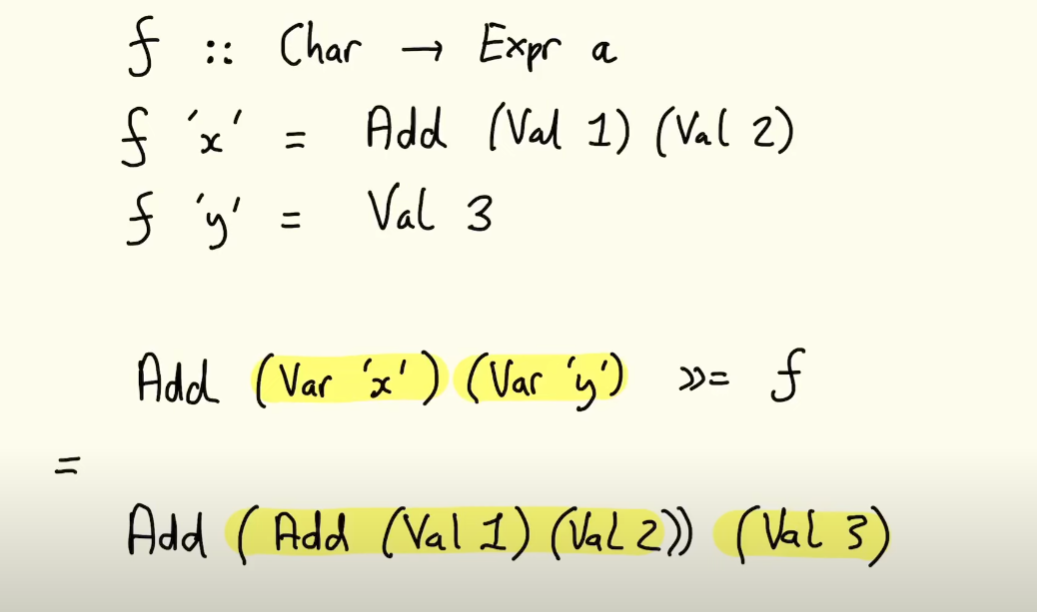 f :: Char → Expr a
f 'x' = Add (Val 1) (Val 2)
f 'y' = Val 3
Add (Var 'x') (Var 'y') >>= f
=
Add (Add (Val 1) (Val 2)) (Val 3)